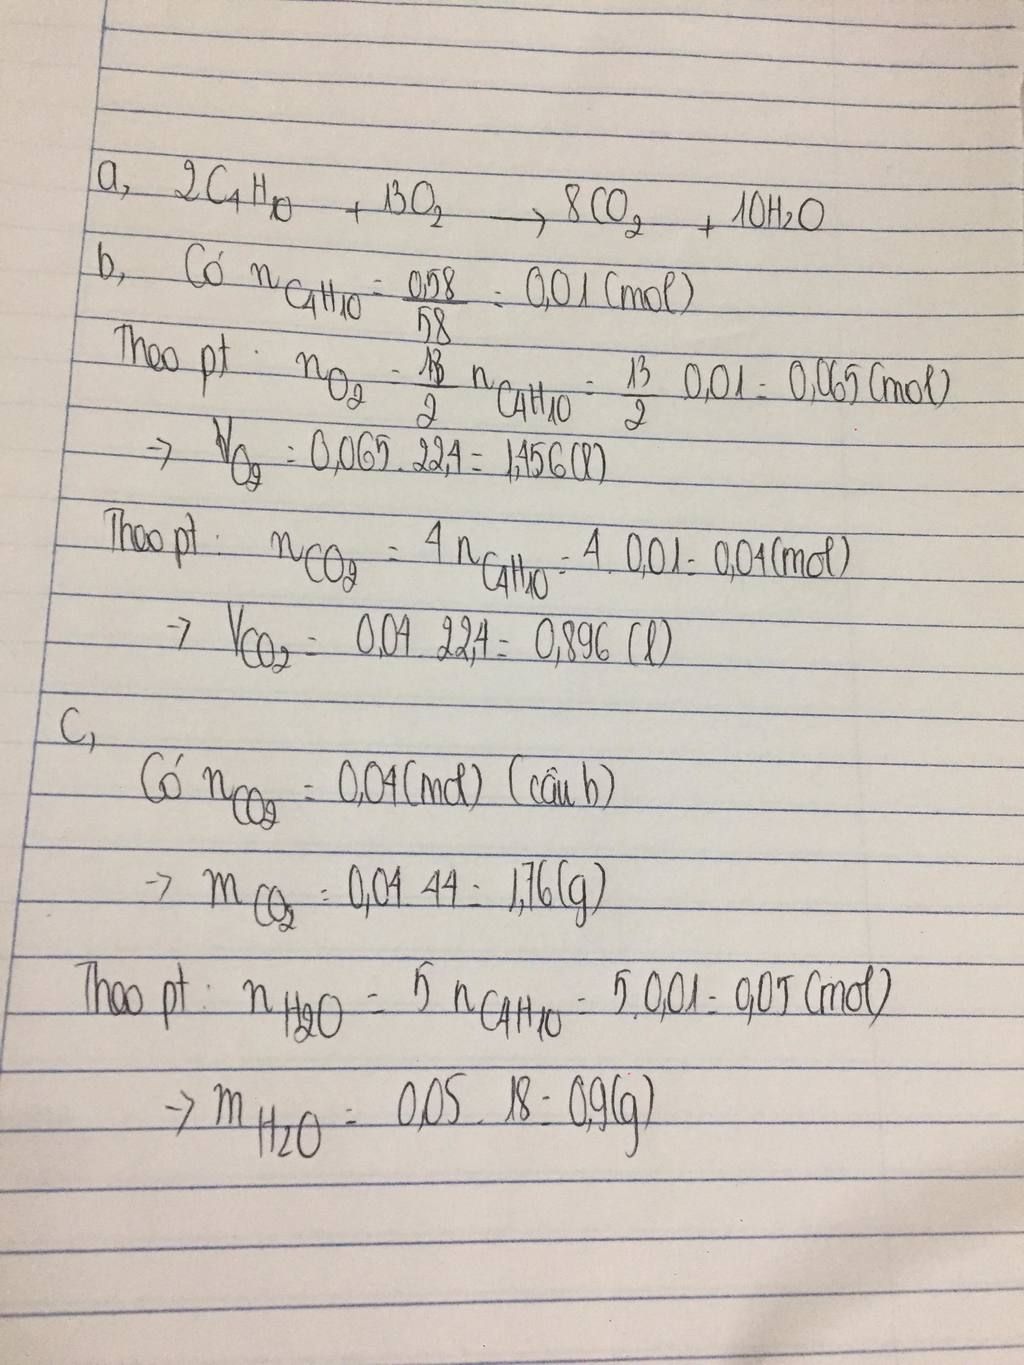 a, 2C4H10 + 13O2 → 8CO2 + 10H2O
b, Có nC4H10 = 0,58/58 = 0,01 (mol)
Theo pt: nO2 = 13/2 nC4H10 = 13/2 0,01 = 0,065 (mol)
→ VO2 = 0,065 . 22,4 = 1,456 (l)
Theo pt: nCO2 = 4 nC4H10 = 4 . 0,01 = 0,04 (mol)
→ VCO2 = 0,04 . 22,4 = 0,896 (l)
C,
Có nCO2 = 0,04 (mol) (câu b)
→ mCO2 = 0,04 . 44 = 1,76 (g)
Theo pt: nH2O = 5 nC4H10 = 5 . 0,01 = 0,05 (mol)
→ mH2O = 0,05 . 18 = 0,9 (g)